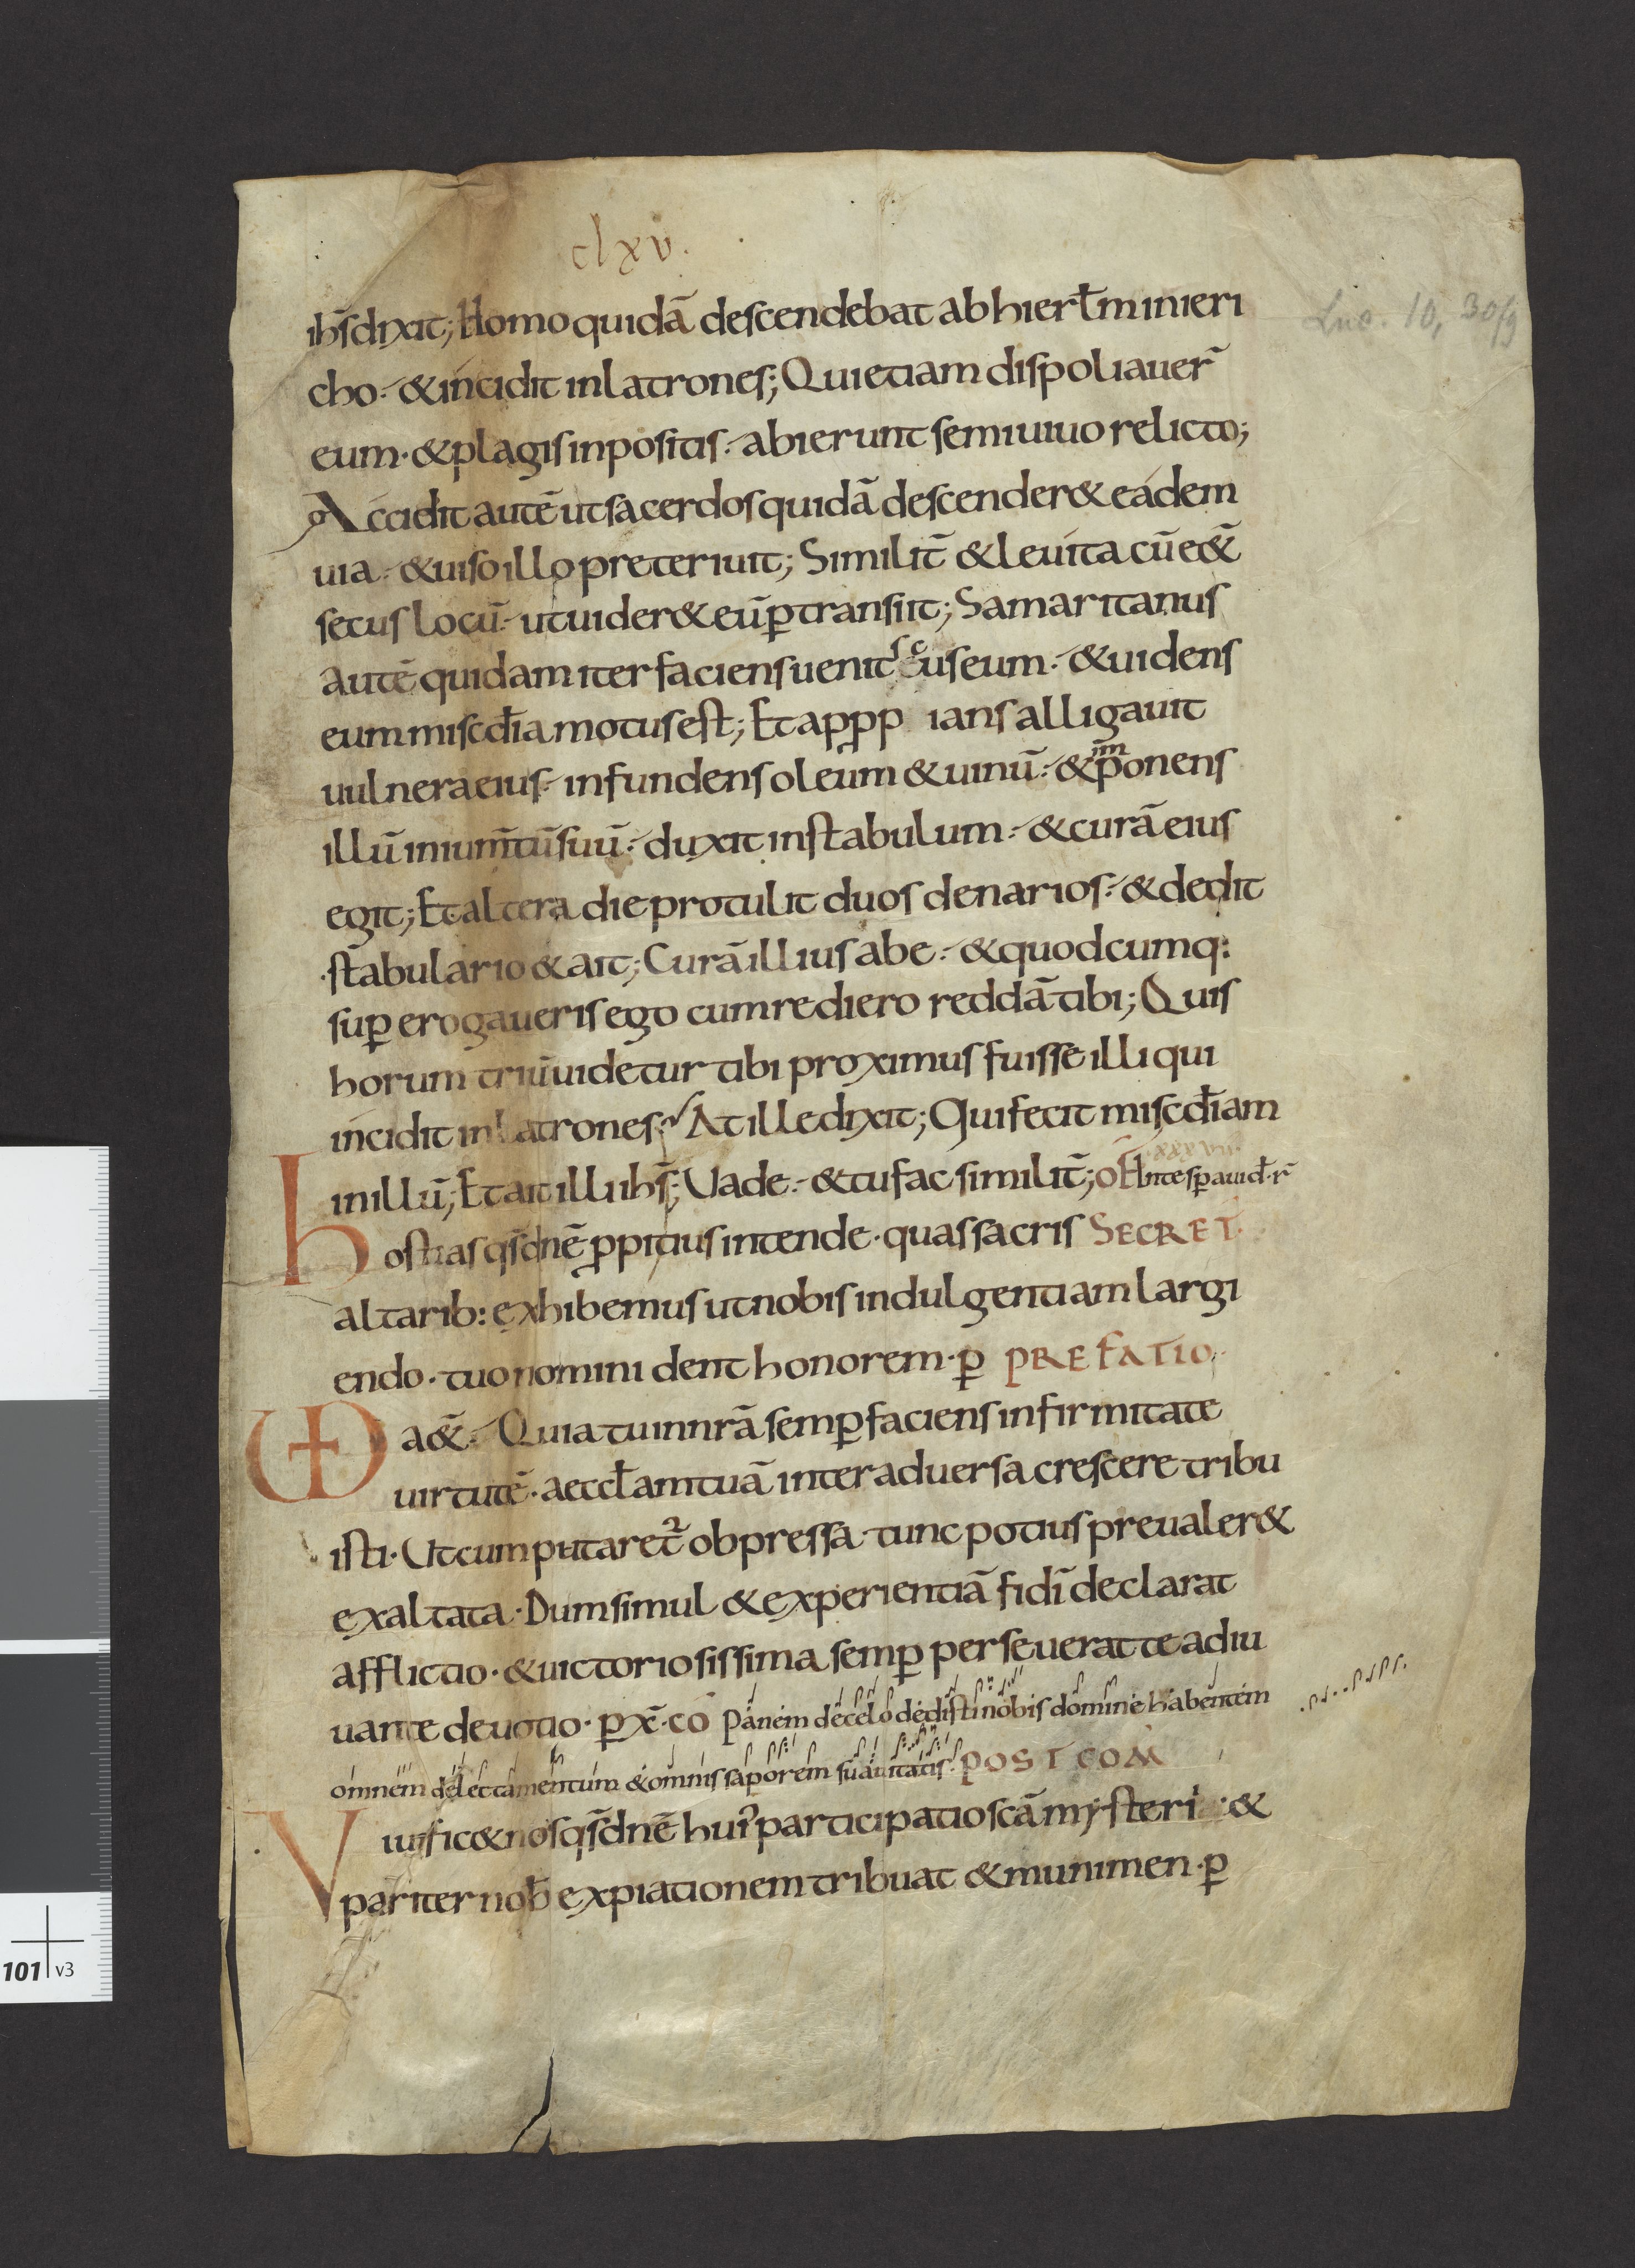 clxv.
ih̅s dixit; Homo quidā descendebat ab hierl̅m in ieri
cho. & incidit in latrones; Qui etiam dispoliauer̅
eum. & plagis inpositis. abierunt semiuiuo relicto;
Accidit autē ut sacerdos quidā descender& eadem
uia. & uiso illo preteriuit; Similit̅ & leuita cū e&̅
secus locū. ut uider& eū p̱transiit; Samaritanus
autē quidam iter faciens uenit secus eum. & uidens
eum miscd̅ia motus est; Et app̱p ians alligauit
uulnera eius. infundens oleum & uinū. & im̅ponens
illū in ium̅tū suū. duxit in stabulum. & curā eius
egit; Et altera die protulit duos denarios. & dedit
stabulario & ait; Curā illius abe. & quodcumq:
sup̱erogaueris ego cum rediero reddā tibi; Quis
horum triū uidetur tibi proximus fuisse illi qui
incidit in latrones? At ille dixit; Qui fecit miscd̅iam
in illū; Et ait illi ih̅s; Uade. & tu fac similit̅; OF In te sp̱auid̅.r̅
xxxvii.
Hostias qs̅ dnē p̱pitius intende. quas sacris SECRET.
altarib: exhibemus ut nobis indulgentiam largi
endo. tuo nomini dent honorem. p̱ PREFATIO.
a&̅. Quia tu in nrā semp̱ faciens infirmitate
uirtutē. aeccl̅am tuā inter aduersa crescere tribu
isti. Ut cum putaret᷑ obpressa. tunc potius preualer&
exaltata. Dum simul & experientiā fidī declarat
afflictio. & uictoriosissima semp̱ perseuerat te adiu
uante deuotio. p̱ xp̅. CŌ Panem de celo dedisti nobis domine habentem
omnem delectamentum & omnis saporem suauitatis. POST COM̅
Viuific& nos qs̅ dnē hui᷒ participatio scā mysterii. &
pariter nob̅ expiationem tribuat & munimen. p̱
Luc. 10, 30/9
101 v3